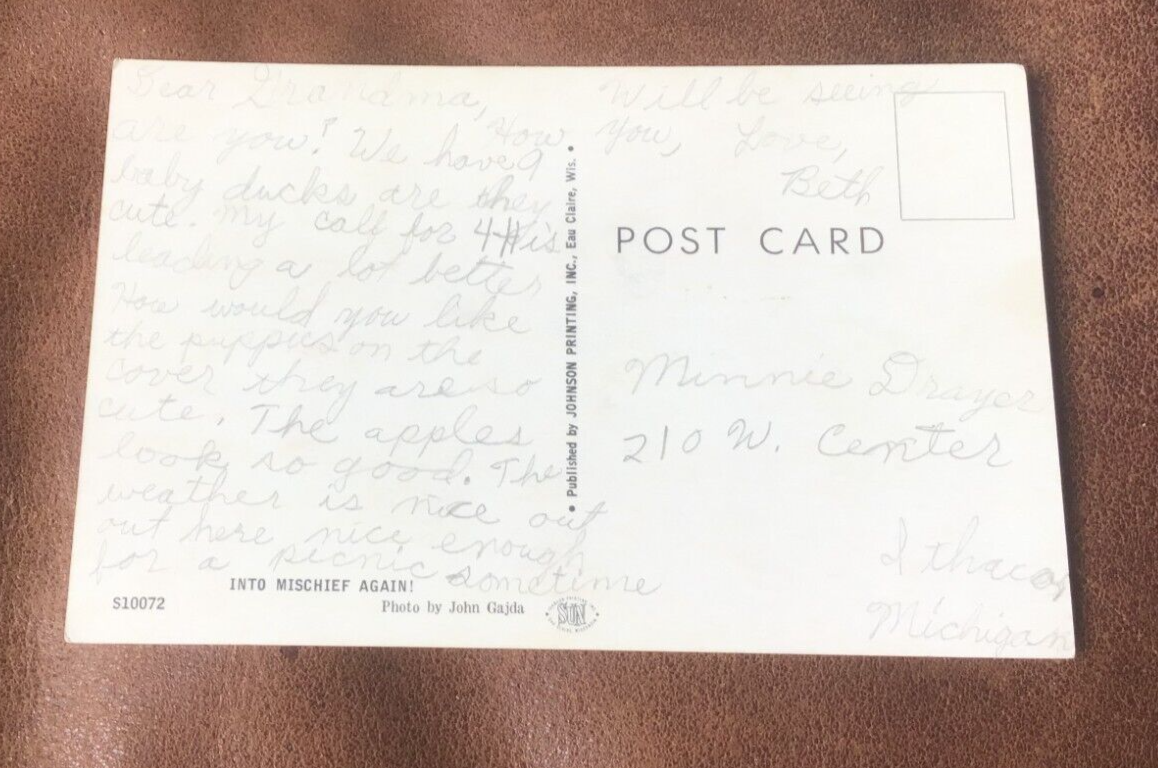 Dear Grandma,
How
are you? We have 9
baby ducks are they
cute. My calf for 4-H is
leading a lot better
How would you like
the puppies on the
cover they are so
cute. The apples
look so good. The
weather is nice out
out here nice enough
for a picnic sometime
Will be seeing
you, Love,
Beth
INTO MISCHIEF AGAIN!
S10072
Photo by John Gajda
• Published by JOHNSON PRINTING, INC., Eau Claire, Wis. •
SUN
POST CARD
Minnie Drayer
210 W. Center
Ithaca
Michigan